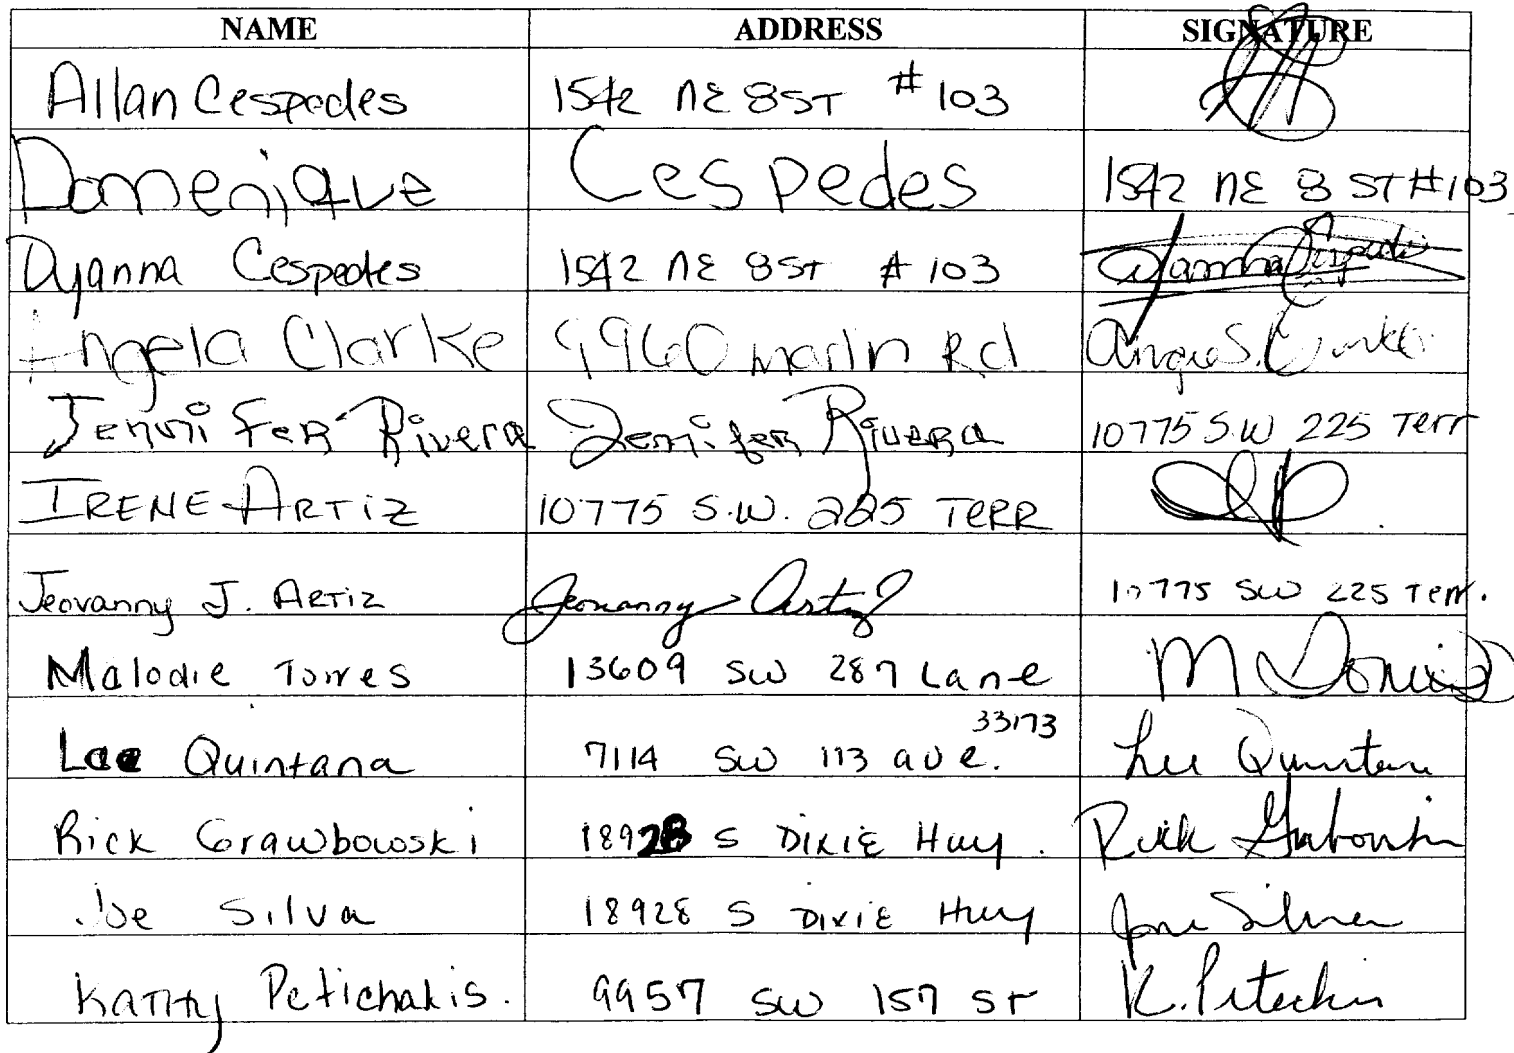 NAME ADDRESS SIGNATURE
Allan Cespedes 1542 NE 8 ST # 103
Domenique Cespedes 1542 NE 8 ST #103
Dyanna Cespedes 1542 NE 8 ST # 103 Dyanna Cespedes
Angela Clarke 9960 Marlin Rd Angie S. Clarke
Jennifer Rivera Jennifer Rivera 10775 S.W 225 Terr
IRENE ARTIZ 10775 S.W. 225 TERR
Jeovanny J. ARTIZ Jeovanny Artiz 10775 SW 225 Terr.
Malodie Torres 13609 SW 287 Lane M Torres
33173
Lee Quintana 7114 SW 113 ave. Lee Quintana
Rick Grawbowski 18928 S DIXIE Hwy. Rick Grabowski
Joe Silva 18928 S DIXIE Hwy Jose Silva
KATHY Petichakis. 9957 SW 157 ST K.